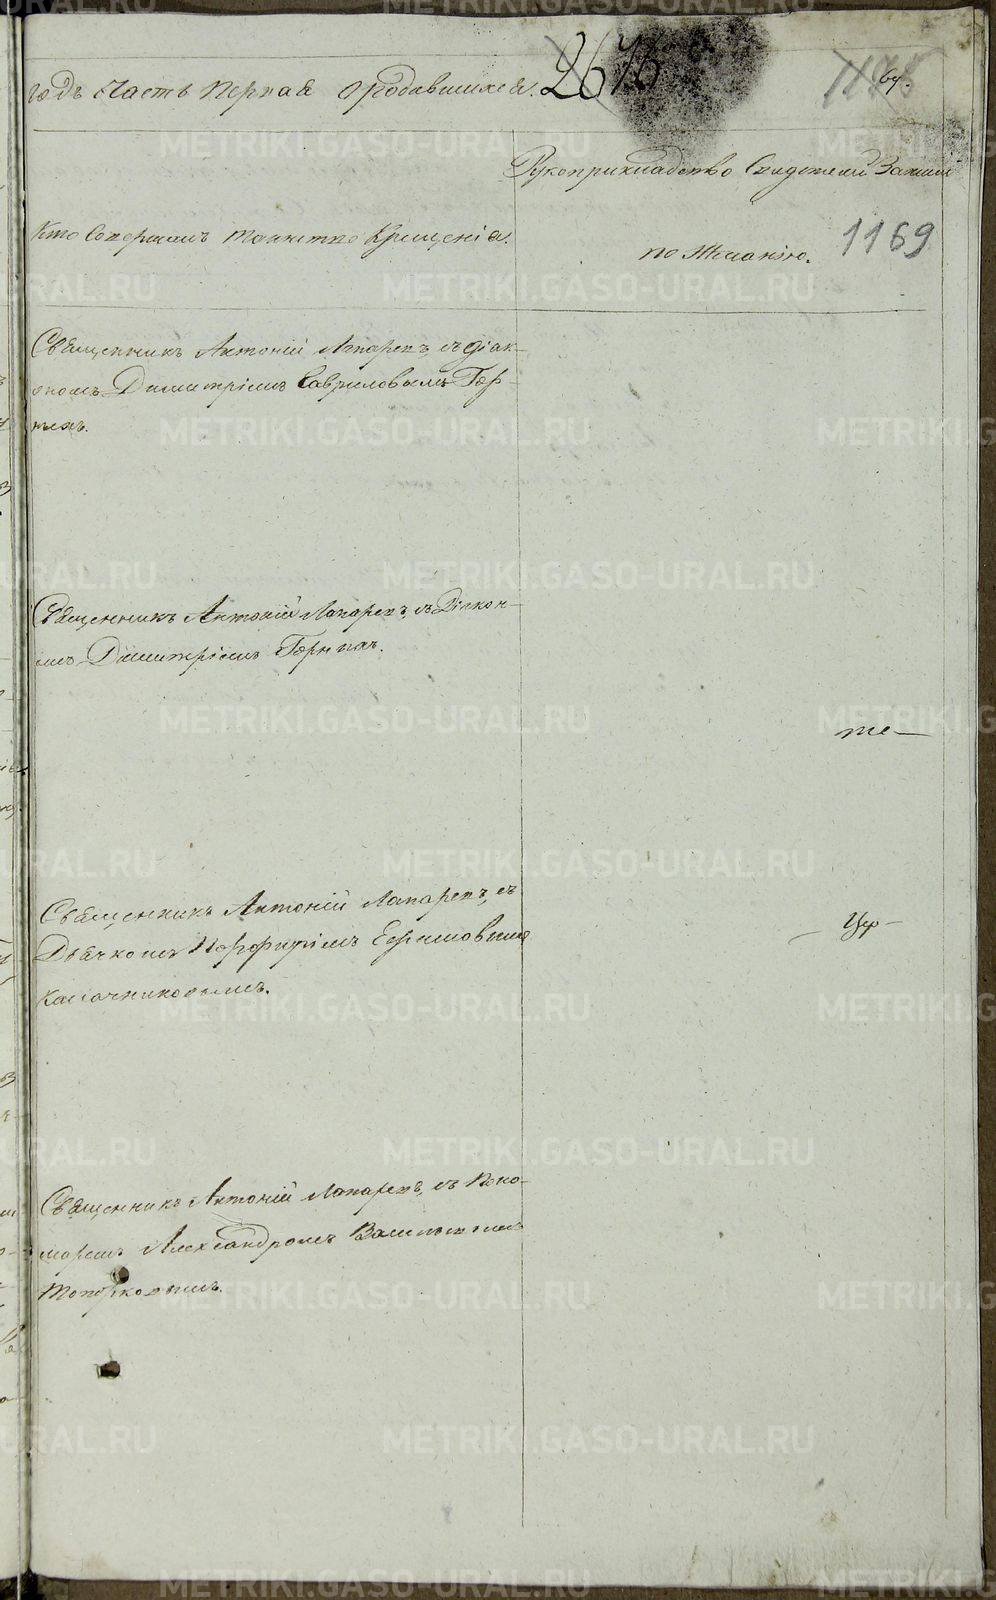 годъ Часть Первая о родившихся. 2676 1175 67.
Рукоприкладство Свидетелей Записи
Кто Совершалъ таинство Крещенія.
по Желанію. 1169
Священникъ Антоній Лапаревъ, съ діак-
ономъ Димитріемъ Гавриловымъ
Священникъ Антоній Лапаревъ, съ Діакон-
омъ Димитріемъ
те
Священникъ Антоній Лапаревъ, съ
Дьячкомъ Порфиріемъ Ефимовымъ
Калачниковымъ.
Священникъ Антоній Лапаревъ, съ Поно-
маремъ Александромъ Васильевымъ
Топорковымъ.
METRIKI.GASO-URAL.RU